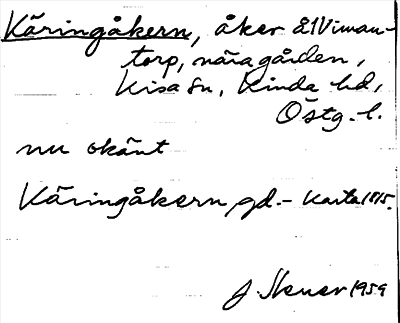 Käringåkern, åker å Viman-
torp, nära gården,
Kisa sn, Kinda hd,
Östg. l.
nu okänt
Käringåkern, gd. - Karta 1815.
J. Skeuer 1959